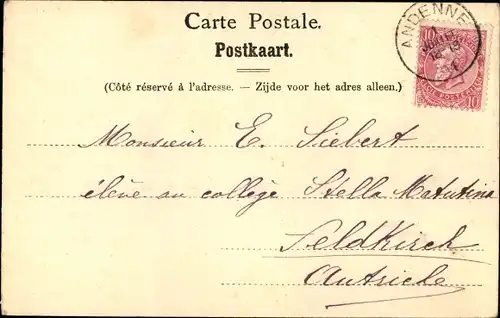 Carte Postale.
Postkaart.
(Côté réservé à l'adresse. — Zijde voor het adres alleen.)
ANDENNE
10 10
10
Monsieur E. Siebert
élève au collège Stella Matutina
Feldkirch
Autriche